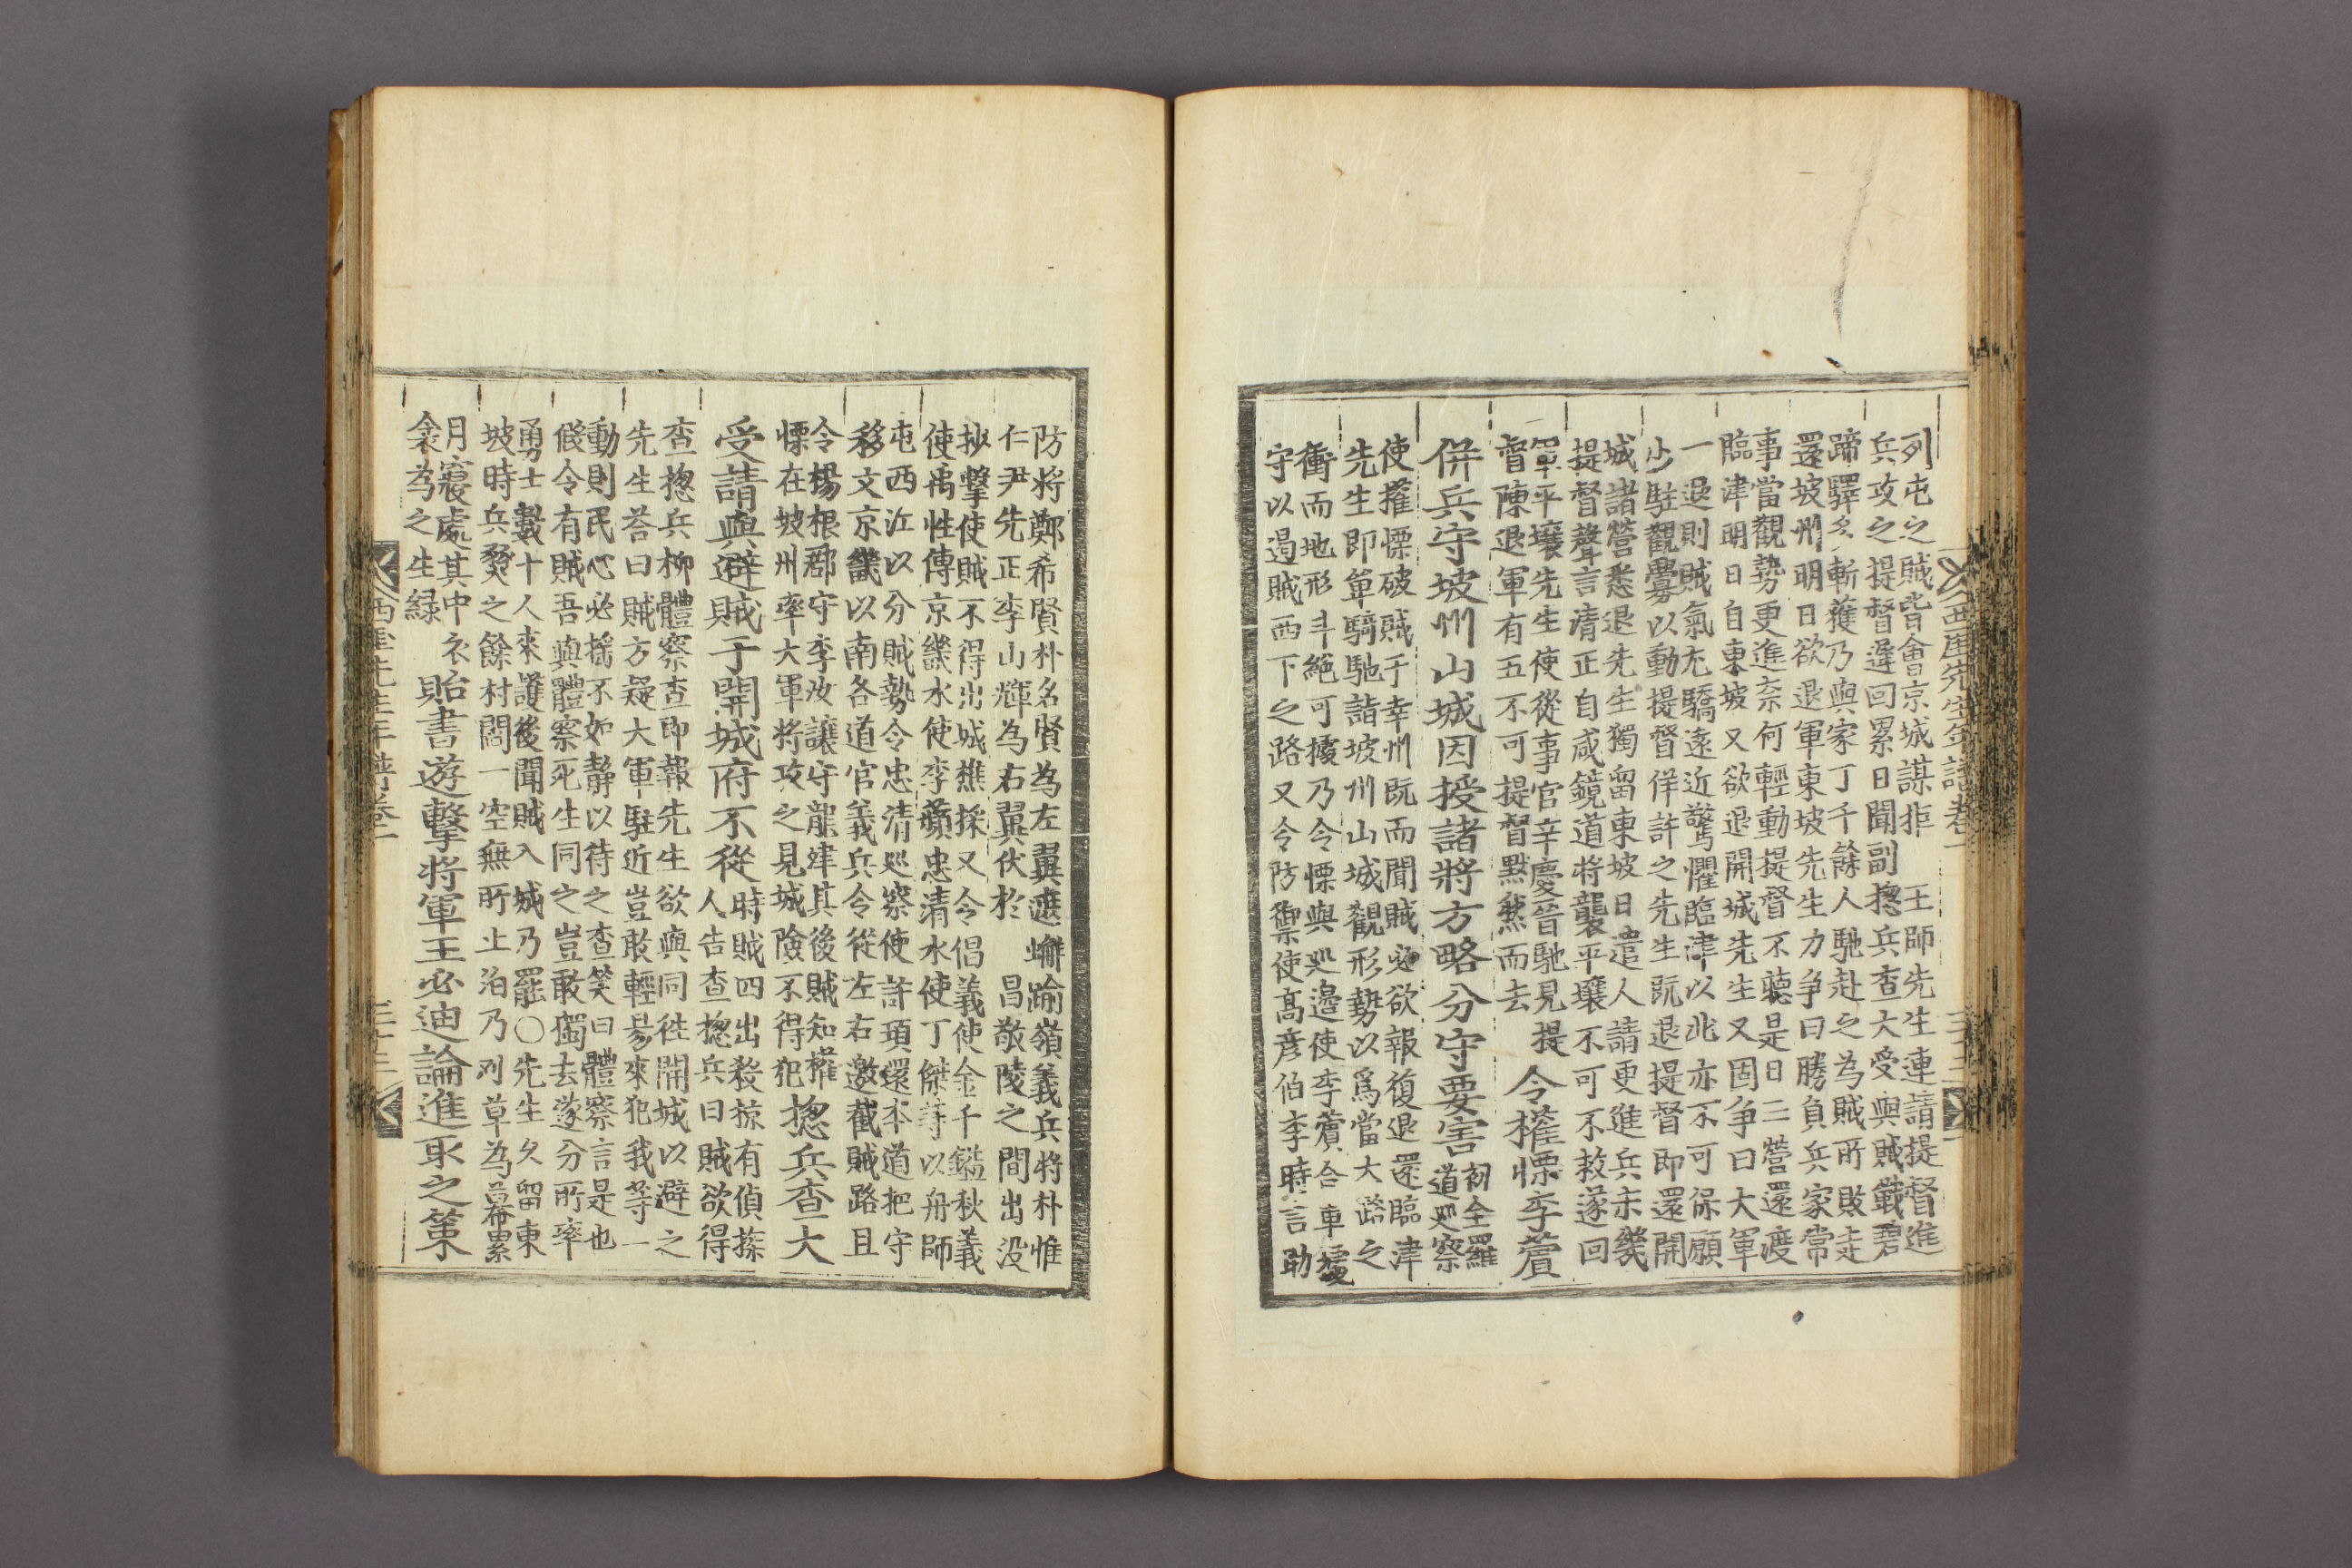 西厓先生年譜卷一
列屯之賊皆會京城謀拒 王師先生連請提督進
兵攻之提督遲回累日聞副揔兵查大受與賊戰碧
蹄驛多斬獲乃與家丁千餘人馳赴之為賊所敗走
還坡州明日欲退軍東坡先生力爭曰勝負兵家常
事當觀勢更進柰何輕動提督不聽是日三營還渡
臨津明日自東坡又欲退開城先生又固爭曰大軍
一退則賊氣尤驕遠近驚懼臨津以北亦不可保願
少駐觀釁以動提督佯許之先生旣退提督即還開
城諸營悉退先生獨留東坡日遣人請更進兵未幾
提督聲言清正自咸鏡道將襲平壤不可不救遂回
軍平壤先生使從事官辛慶晉馳見提
督陳退軍有五不可提督默然而去
令權慄李薲
併兵守坡州山城因授諸將方略分守要害
初全羅
道巡察
使權慄破賊于幸州旣而聞賊必欲報復退還臨津
先生即單騎馳詣坡州山城觀形勢以爲當大路之
衝而地形斗絕可據乃令慄與巡邊使李薲合軍據
守以遏賊西下之路又令防禦使高彦伯李時言助
防將鄭希賢朴名賢為左翼遮蠏踰嶺義兵將朴惟
仁尹先正李山輝為右翼伏於 昌敬陵之間出沒
抄擊使賊不得出城樵採又令倡義使金千鎰秋義
使禹性傳京畿水使李蘋忠清水使丁傑等以舟師
屯西江以分賊勢令忠清巡察使許頊還本道把守
移文京畿以南各道官義兵令從左右邀截賊路且
令楊根郡守李汝讓守龍津其後賊知權
慄在坡州率大軍將攻之見城險不得犯
揔兵查大
受請與避賊于開城府不從
時賊四出殺掠有偵探
人告查揔兵曰賊欲得
查揔兵柳體察查即報先生欲與同徃開城以避之
先生荅曰賊方疑大軍駐近豈敢輕易來犯我等一
動則民心必搖不如靜以待之查笑曰體察言是也
假令有賊吾與體察死生同之豈敢獨去遂分所率
勇士數十人來護後聞賊入城乃罷○先生久留東
坡時兵燹之餘村閭一空無所止泊乃列草為幕累
月寢處其中衣
衾為之生緑
貽書遊擊將軍王必迪論進取之策
西厓先生年譜卷一